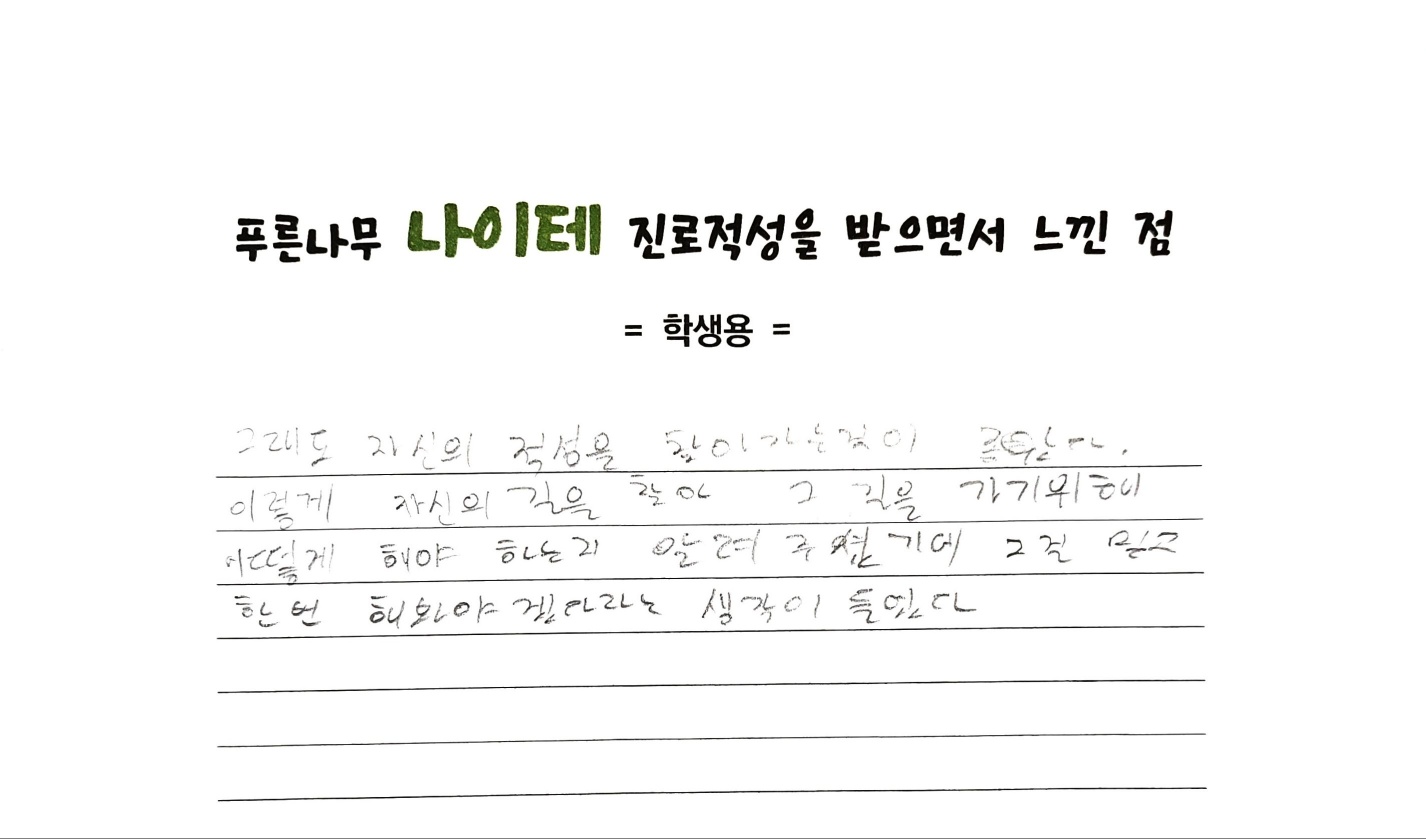 푸른나무 나이테 진로적성을 받으면서 느낀 점
= 학생용 =
그래도 자신의 적성을 찾아가는것이
이렇게 자신의 길을 찾아 그 길을 가기위해
어떻게 해야 하는지 알려 주셨기에 그걸 믿고
한번 해봐야겠다라는 생각이 들었다